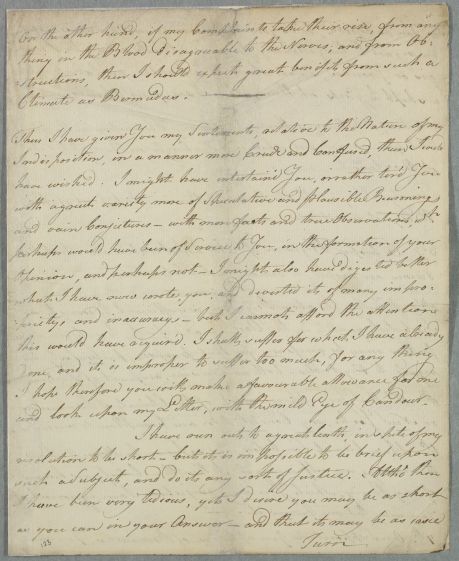 On the other hand, if my Complaints take their rise, from any
thing in the Blood disagreeable to the Nerves, and from Ob-
structions, then I should expect great benefit from such a
Climate as Bermudas.
Thus I have given You my Sentiments, relative to the Nature of my
Indisposition, in a manner more Crude and Confused, than I could
have wished. I might have entertain'd You, or rather tired You
with a great variety more of Speculative and plausible Reasonings
and vain Conjectures — with more facts and true Observations,
perhaps would have been of Service to You, in the formation of your
Opinion, and perhaps not — I might also have digested better
what I have now wrote you, and divested it of many impro-
prietys and inaccuracys — but I cannot afford the attention
this would have requir'd. I shall suffer for what I have already
one, and it is improper to suffer too much, for any thing
I hope therefore you will make a favourable allowance for me
and look upon my Letter, with the mild Eye of Candour.
I have run out to a great length, in spite of my
resolution to be short — but it is impossible to be brief upon
such a Subject, and do its any sort of Justice. Altho' then
I have been very tedious, yet I desire you may be as short
as you can in your Answer — and that it may be as
Turn
123